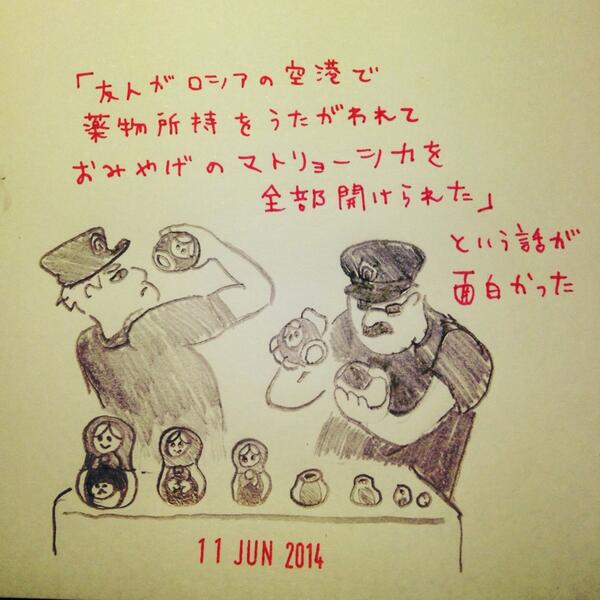 「友人がロシアの空港で
薬物所持をうたがわれて
おみやげのマトリョーシカを
全部開けられた」
という話が
面白かった
11 JUN 2014